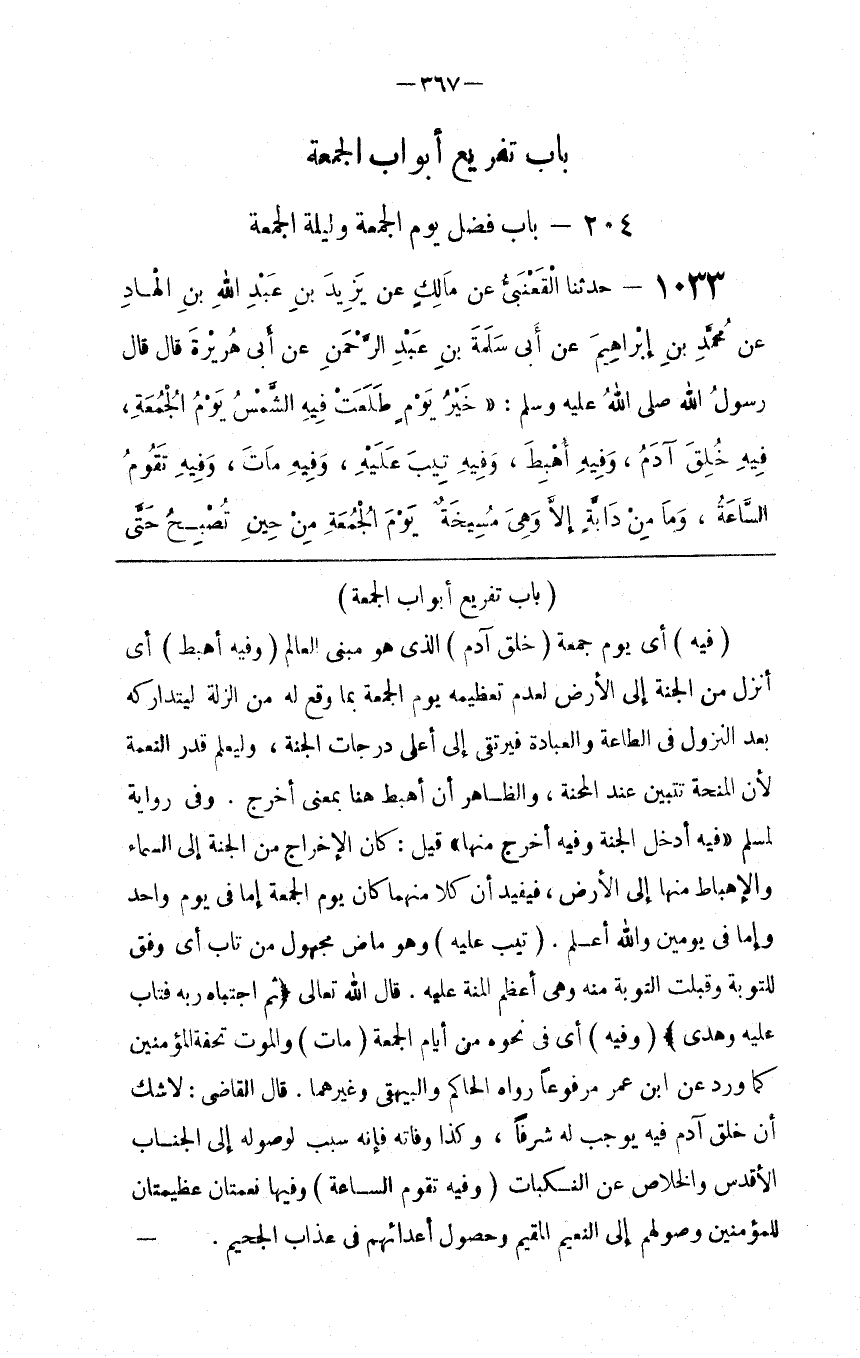 —٣٦٧—
باب تفريع أبواب الجمعة
٢٠٤ — باب فضل يوم الجمعة وليلة الجمعة
١٠٣٣ — حدثنا الْقَعْنَبِىُّ عن مَالِكٍ عن يَزِيدَ بنِ عَبْدِ اللهِ بنِ الْهَـادِ
عن مُحمَّدِ بنِ إبْرَاهِيمَ عن أبى سَلَمَةَ بنِ عَبْدِ الرَّحْمَنِ عن أبى هُرَيْرَةَ قال قال
رسولُ الله صلى اللهُ عليه وسلم : « خَيْرُ يَوْمٍ طَلَعَتْ فِيهِ الشَّمْسُ يَوْمُ الْجُمُعَةِ ،
فِيهِ خُلِقَ آدَمُ ، وَفِيهِ أُهْبِطَ ، وَفِيهِ تِيبَ عَلَيْهِ ، وَفِيهِ مَاتَ ، وَفِيهِ تَقُومُ
السَّاعَةُ ، وَمَا مِنْ دَابَّةٍ إلاَّ وَهِىَ مُسِيخَةٌ يَوْمَ الْجُمُعَةِ مِنْ حِينِ تُصْبِـحُ حَتَّى
( باب تفريع أبواب الجمعة )
( فيه ) أى يوم جمعة ( خلق آدم ) الذى هو مبنى العالم ( وفيه أهبط ) أى
أنزل من الجنة إلى الأرض لعدم تعظيمه يوم الجمعة بما وقع له من الزلة ليتداركه
بعد النزول فى الطاعة والعبادة فيرتقى إلى أعلى درجات الجنة ، وليعلم قدر النعمة
لأن المنحة تتبين عند المحنة ، والظـاهر أن أهبط هنا بمعنى أخرج . وفى رواية
لمسلم «فيه أدخل الجنة وفيه أخرج منها» قيل : كان الإخراج من الجنة إلى السماء
والإهباط منها إلى الأرض ، فيفيد أن كلا منهما كان يوم الجمعة إما فى يوم واحد
وإما فى يومين والله أعـلم . ( تيب عليه ) وهو ماض مجهول من تاب أى وفق
للتوبة وقبلت التوبة منه وهى أعظم المنة عليه . قال الله تعالى ﴿ثم اجتباه ربه فتاب
عليه وهدى ﴾ ( وفيه ) أى فى نحوه من أيام الجمعة ( مات ) والموت تحفة المؤمنين
كما ورد عن ابن عمر مرفوعاً رواه الحاكم والبيهقى وغيرهما . قال القاضى : لاشك
أن خلق آدم فيه يوجب له شرفاً ، وكذا وفاته فإنه سبب لوصوله إلى الجنـاب
الأقدس والخلاص عن النـكبات ( وفيه تقوم السـاعة ) وفيها نعمتان عظيمتان
للمؤمنين وصولهم إلى النعيم المقيم وحصول أعدائهم فى عذاب الجحيم . —